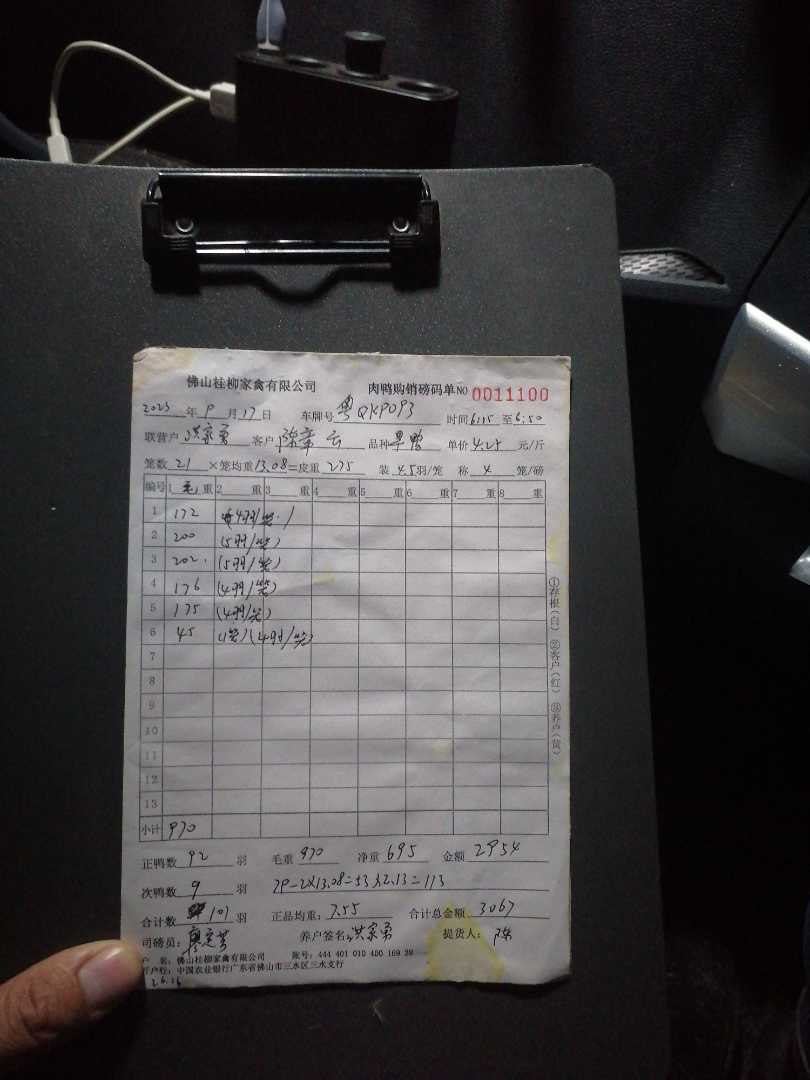 佛山桂柳家禽有限公司 肉鸭购销磅码单NO 0011100
2023 年 9 月 17 日 车牌号 粤QKP093 时间 6:15 至 6:50
联营户 洪家勇 客户 陈章云 品种 旱鸭 单价 4.25 元/斤
笼数 21 ×笼均重 13.08 =皮重 275 装 4.5 羽/笼 称 4 笼/磅
编号 1 毛 重 2 重 3 重 4 重 5 重 6 重 7 重 8 重
1 172 (4羽/笼)
2 200 (5羽/笼)
3 202 (5羽/笼)
4 176 (4羽/笼)
5 175 (4羽/笼)
6 45 (1笼)(4羽/笼)
7
8
9
10
11
12
13
小计 970
正鸭数 92 羽 毛重 970 净重 695 金额 2954
次鸭数 9 羽 79-2×13.08=53×2.13=113
合计数 101 羽 正品均重: 7.55 合计总金额 3067
司磅员: 养户签名: 洪家勇 提货人: 陈
户 名: 佛山桂柳家禽有限公司 账号: 444 401 010 400 169 39
开户行: 中国农业银行广东省佛山市三水区三水支行
26.16
①存根(白) ②客户(红) ③养户(黄)